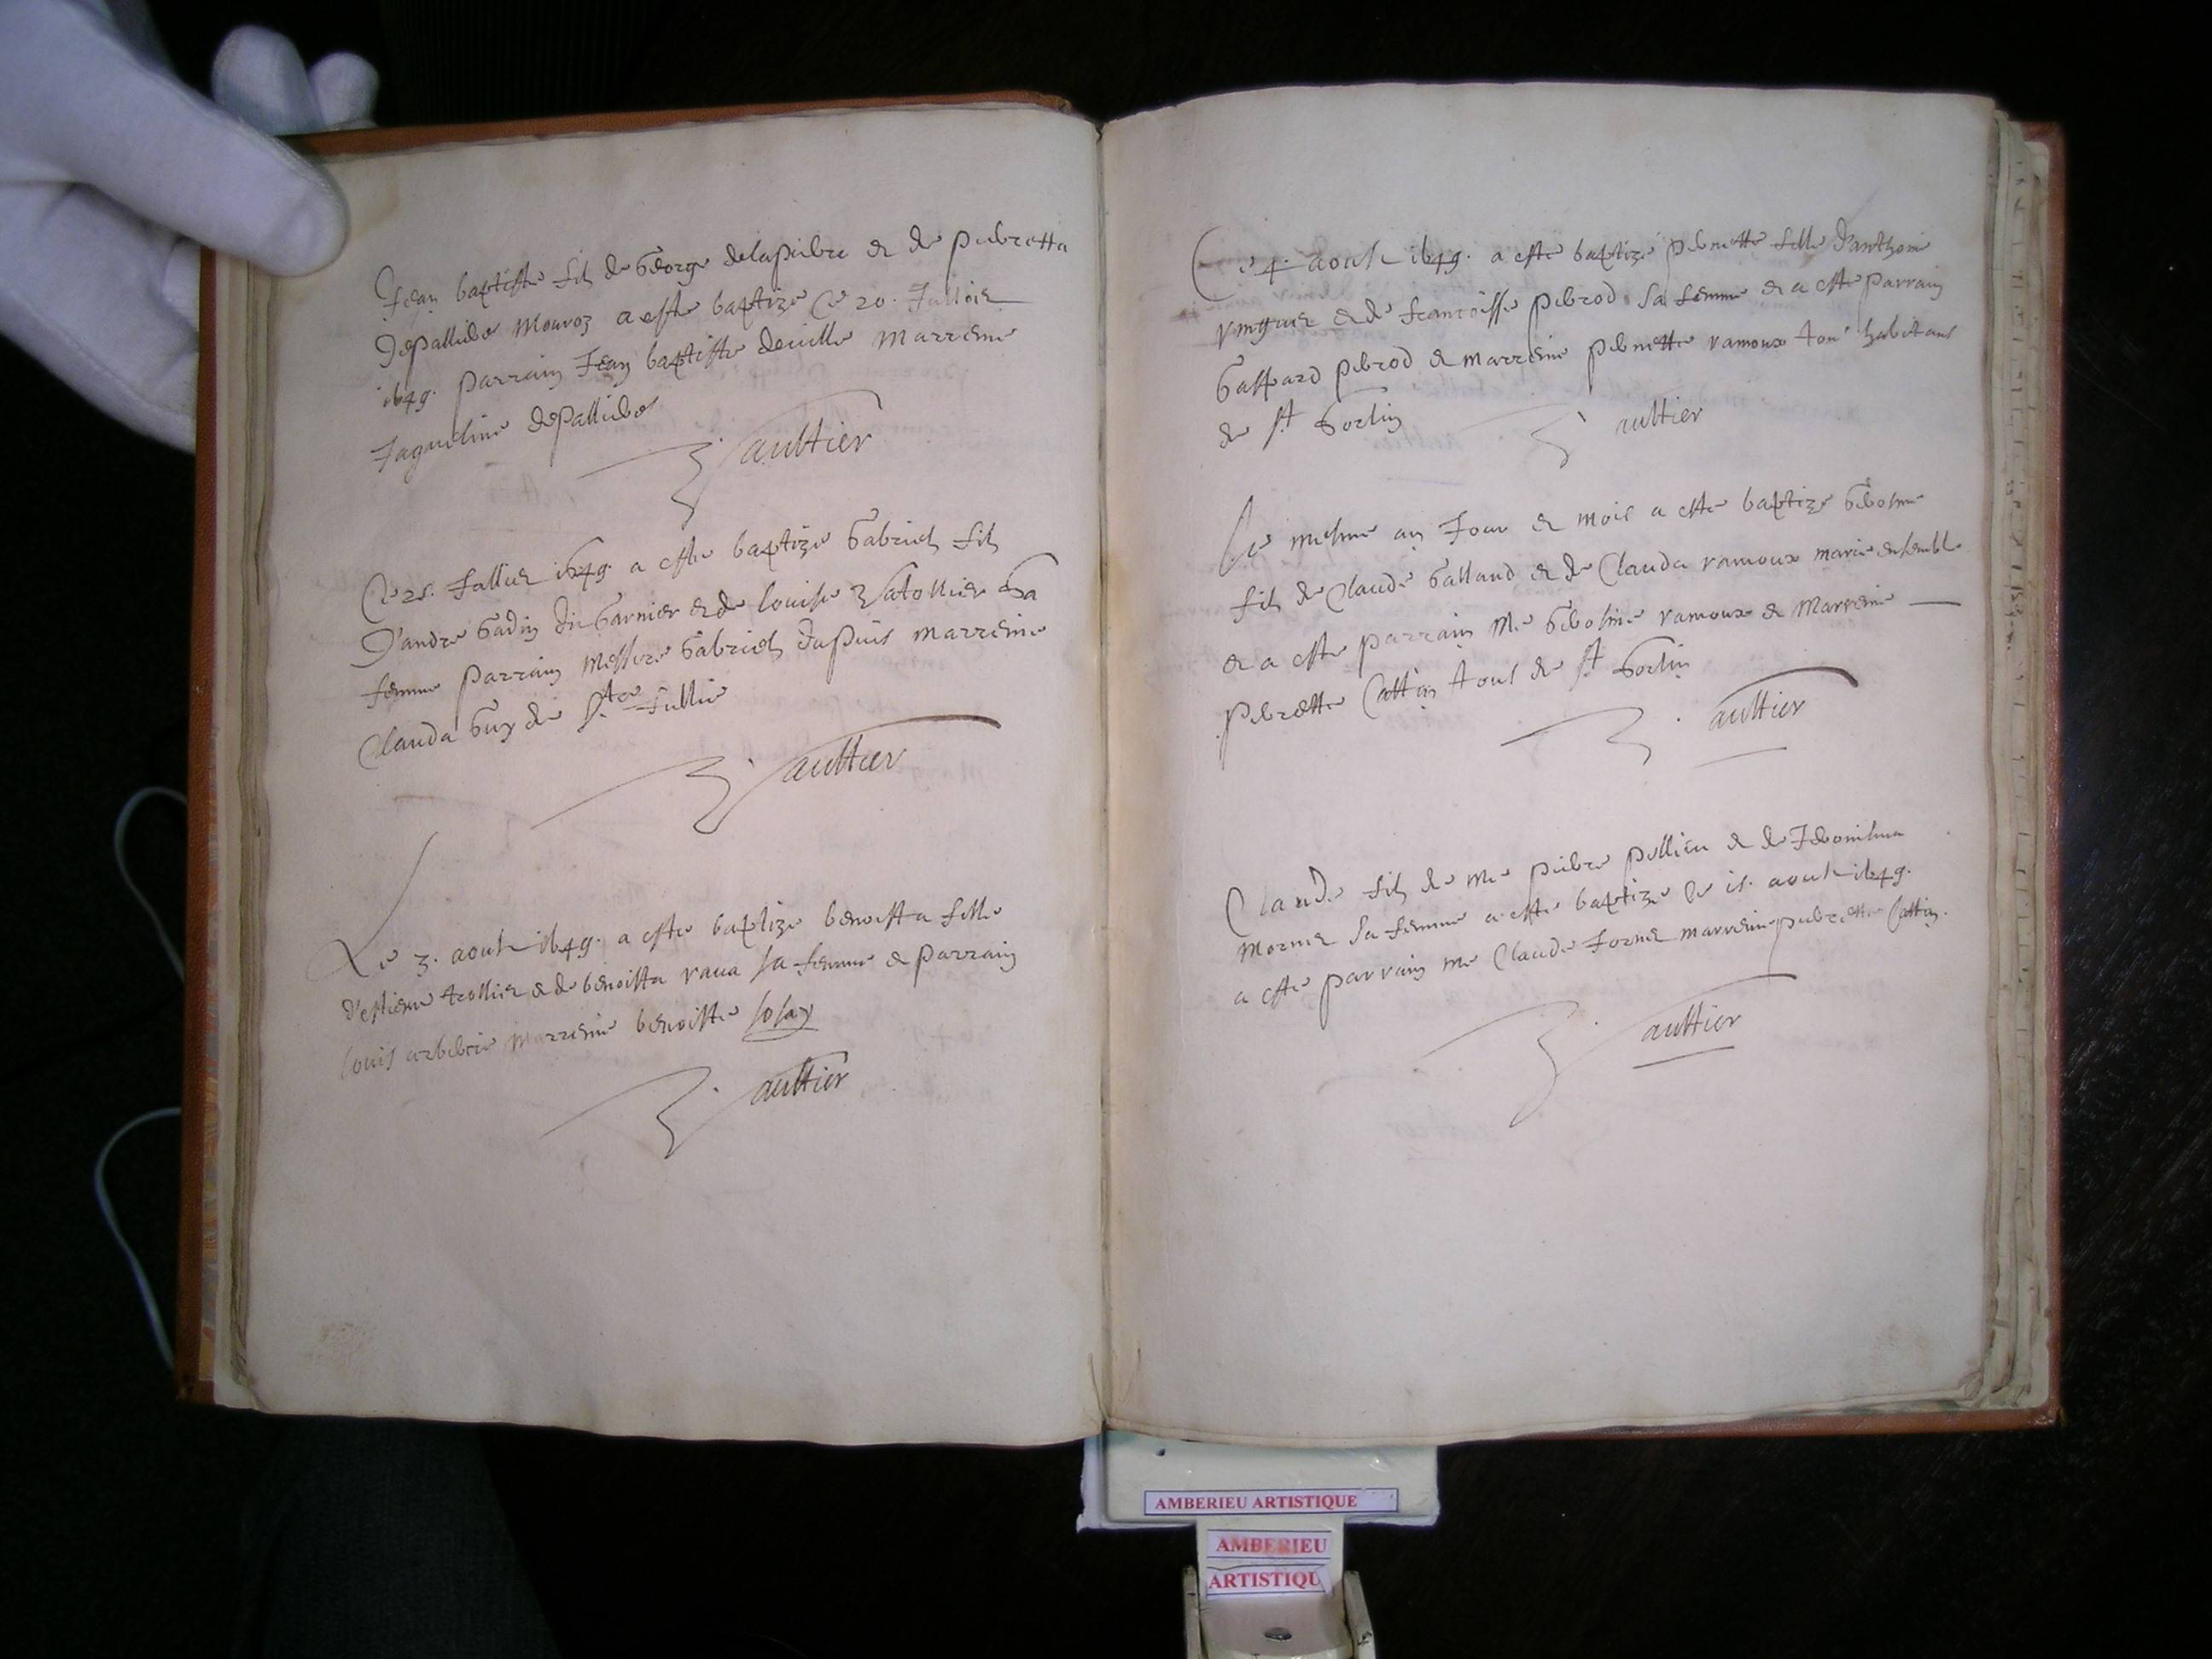 Jean baptiste fils de George delapierre et de pierretta
Depallides Mouroz a este baptize Ce 20. Julliet
1649. parrain Jean baptiste deville marrenie
Jaqueline depallides
Gaultier
Ce 25. Jullier 1649. a este baptize Gabriel fils
D'andre Gadin du Garnier et de louise Vatollier Sa
femme parrain Messire Gabriel dupuis marreine
Clauda Guy de Ste Jullie
Gaultier
Le 3. aoust 1649. a este baptize benoista fille
d'estiene trollier et de benoista rava sa femme et parrain
louis arbibere marreine benoiste
Gaultier
Ce 4. aoust 1649. a este baptize pernette fille d'anthoine
et de francoisse pebrod sa femme et a este parrain
Gaspard pebrod et marreine pernette ramoux tous habitans
de st Sorlin
Gaultier
Le mesme an Jour et mois a este baptize Gerosme
fils de Claude Galland et de Clauda ramoux marie ensemble
et a este parrain Me Gerosme ramoux et Marreine
perrette Cattin tous de st Sorlin
Gaultier
Claude fils de me pierre pellieu et de Jeronisma
Mornier sa femme a este baptize le 15. aoust 1649.
a este parrain me Claude fornier marreine pierrette Cattin.
Gaultier
AMBERIEU ARTISTIQUE
AMBERIEU
ARTISTIQU